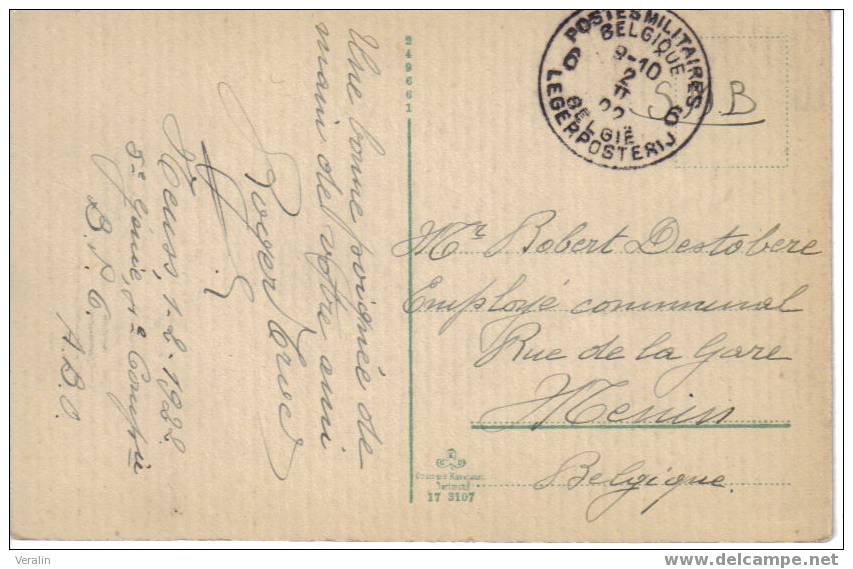 Une bonne poignée de
main de votre ami
Roger
Neuss, 1-2-1922
5e Génie, 1e Compie
B.P.6.
A.B.O.
249661
POSTES MILITAIRES
BELGIQUE
9-10
2
II
22
BELGIË
LEGERPOSTERIJ
6 6
S.M.B
Mr Robert Destobere
Employé communal
Rue de la Gare
Menin
Belgique.
17 3107
Veralin
www.delcampe.net